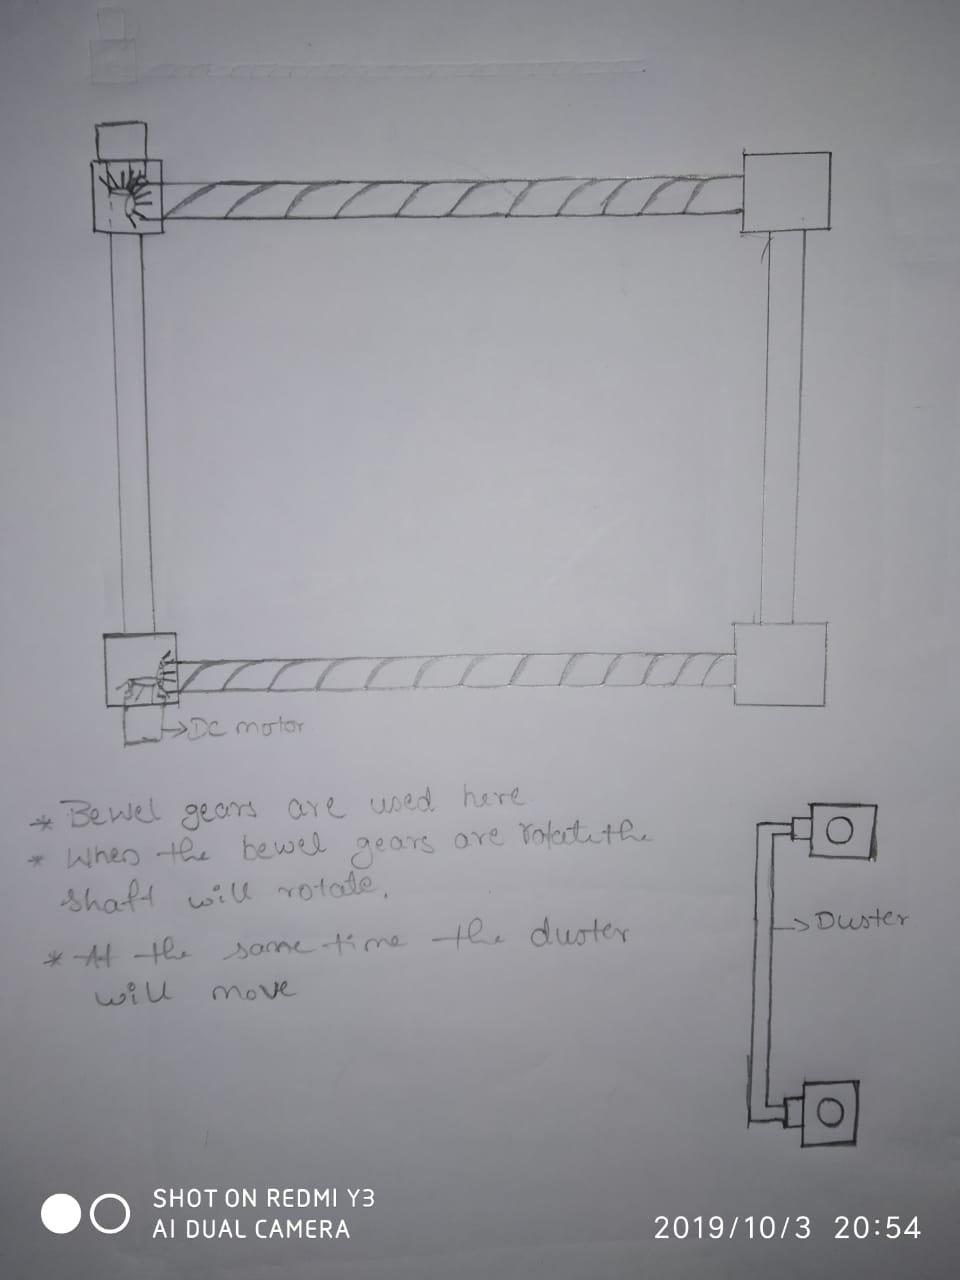 →DC motor
* Bewel gears are used here
* When the bewel gears are rotate the
shaft will rotate.
→Duster
* At the same time the duster
will move
SHOT ON REDMI Y3
AI DUAL CAMERA
2019/10/3 20:54